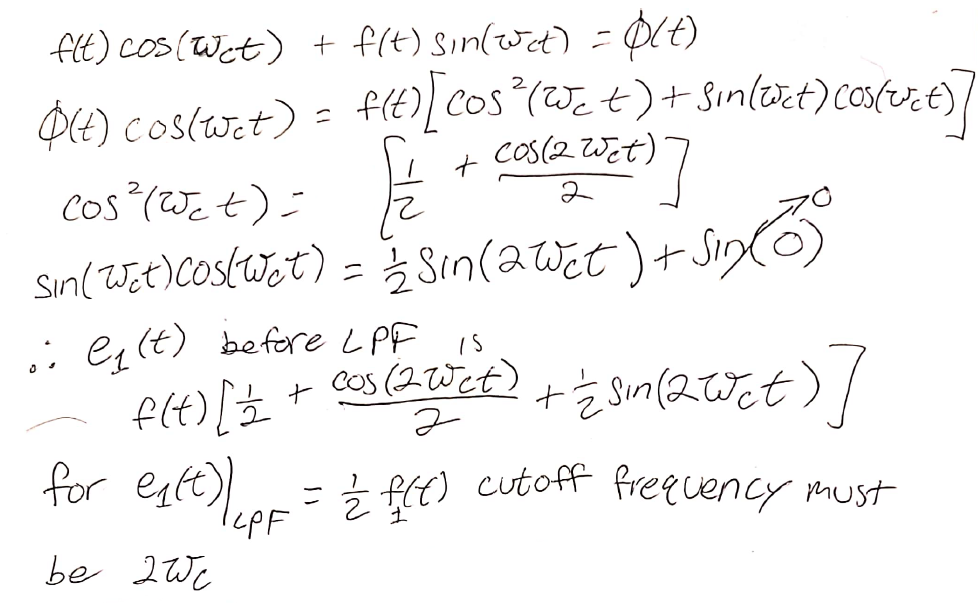 f(t) cos(ωct) + f(t) sin(ωct) = ϕ(t)
ϕ(t) cos(ωct) = f(t)[cos²(ωct) + sin(ωct) cos(ωct)]
cos²(ωct) = [1/2 + cos(2ωct)/2]
sin(ωct)cos(ωct) = 1/2 sin(2ωct) + sin(0) ↗0
∴ e1(t) before LPF is
f(t)[1/2 + cos(2ωct)/2 + 1/2 sin(2ωct)]
for e1(t)|LPF = 1/2 f1(t) cutoff frequency must
be 2ωc